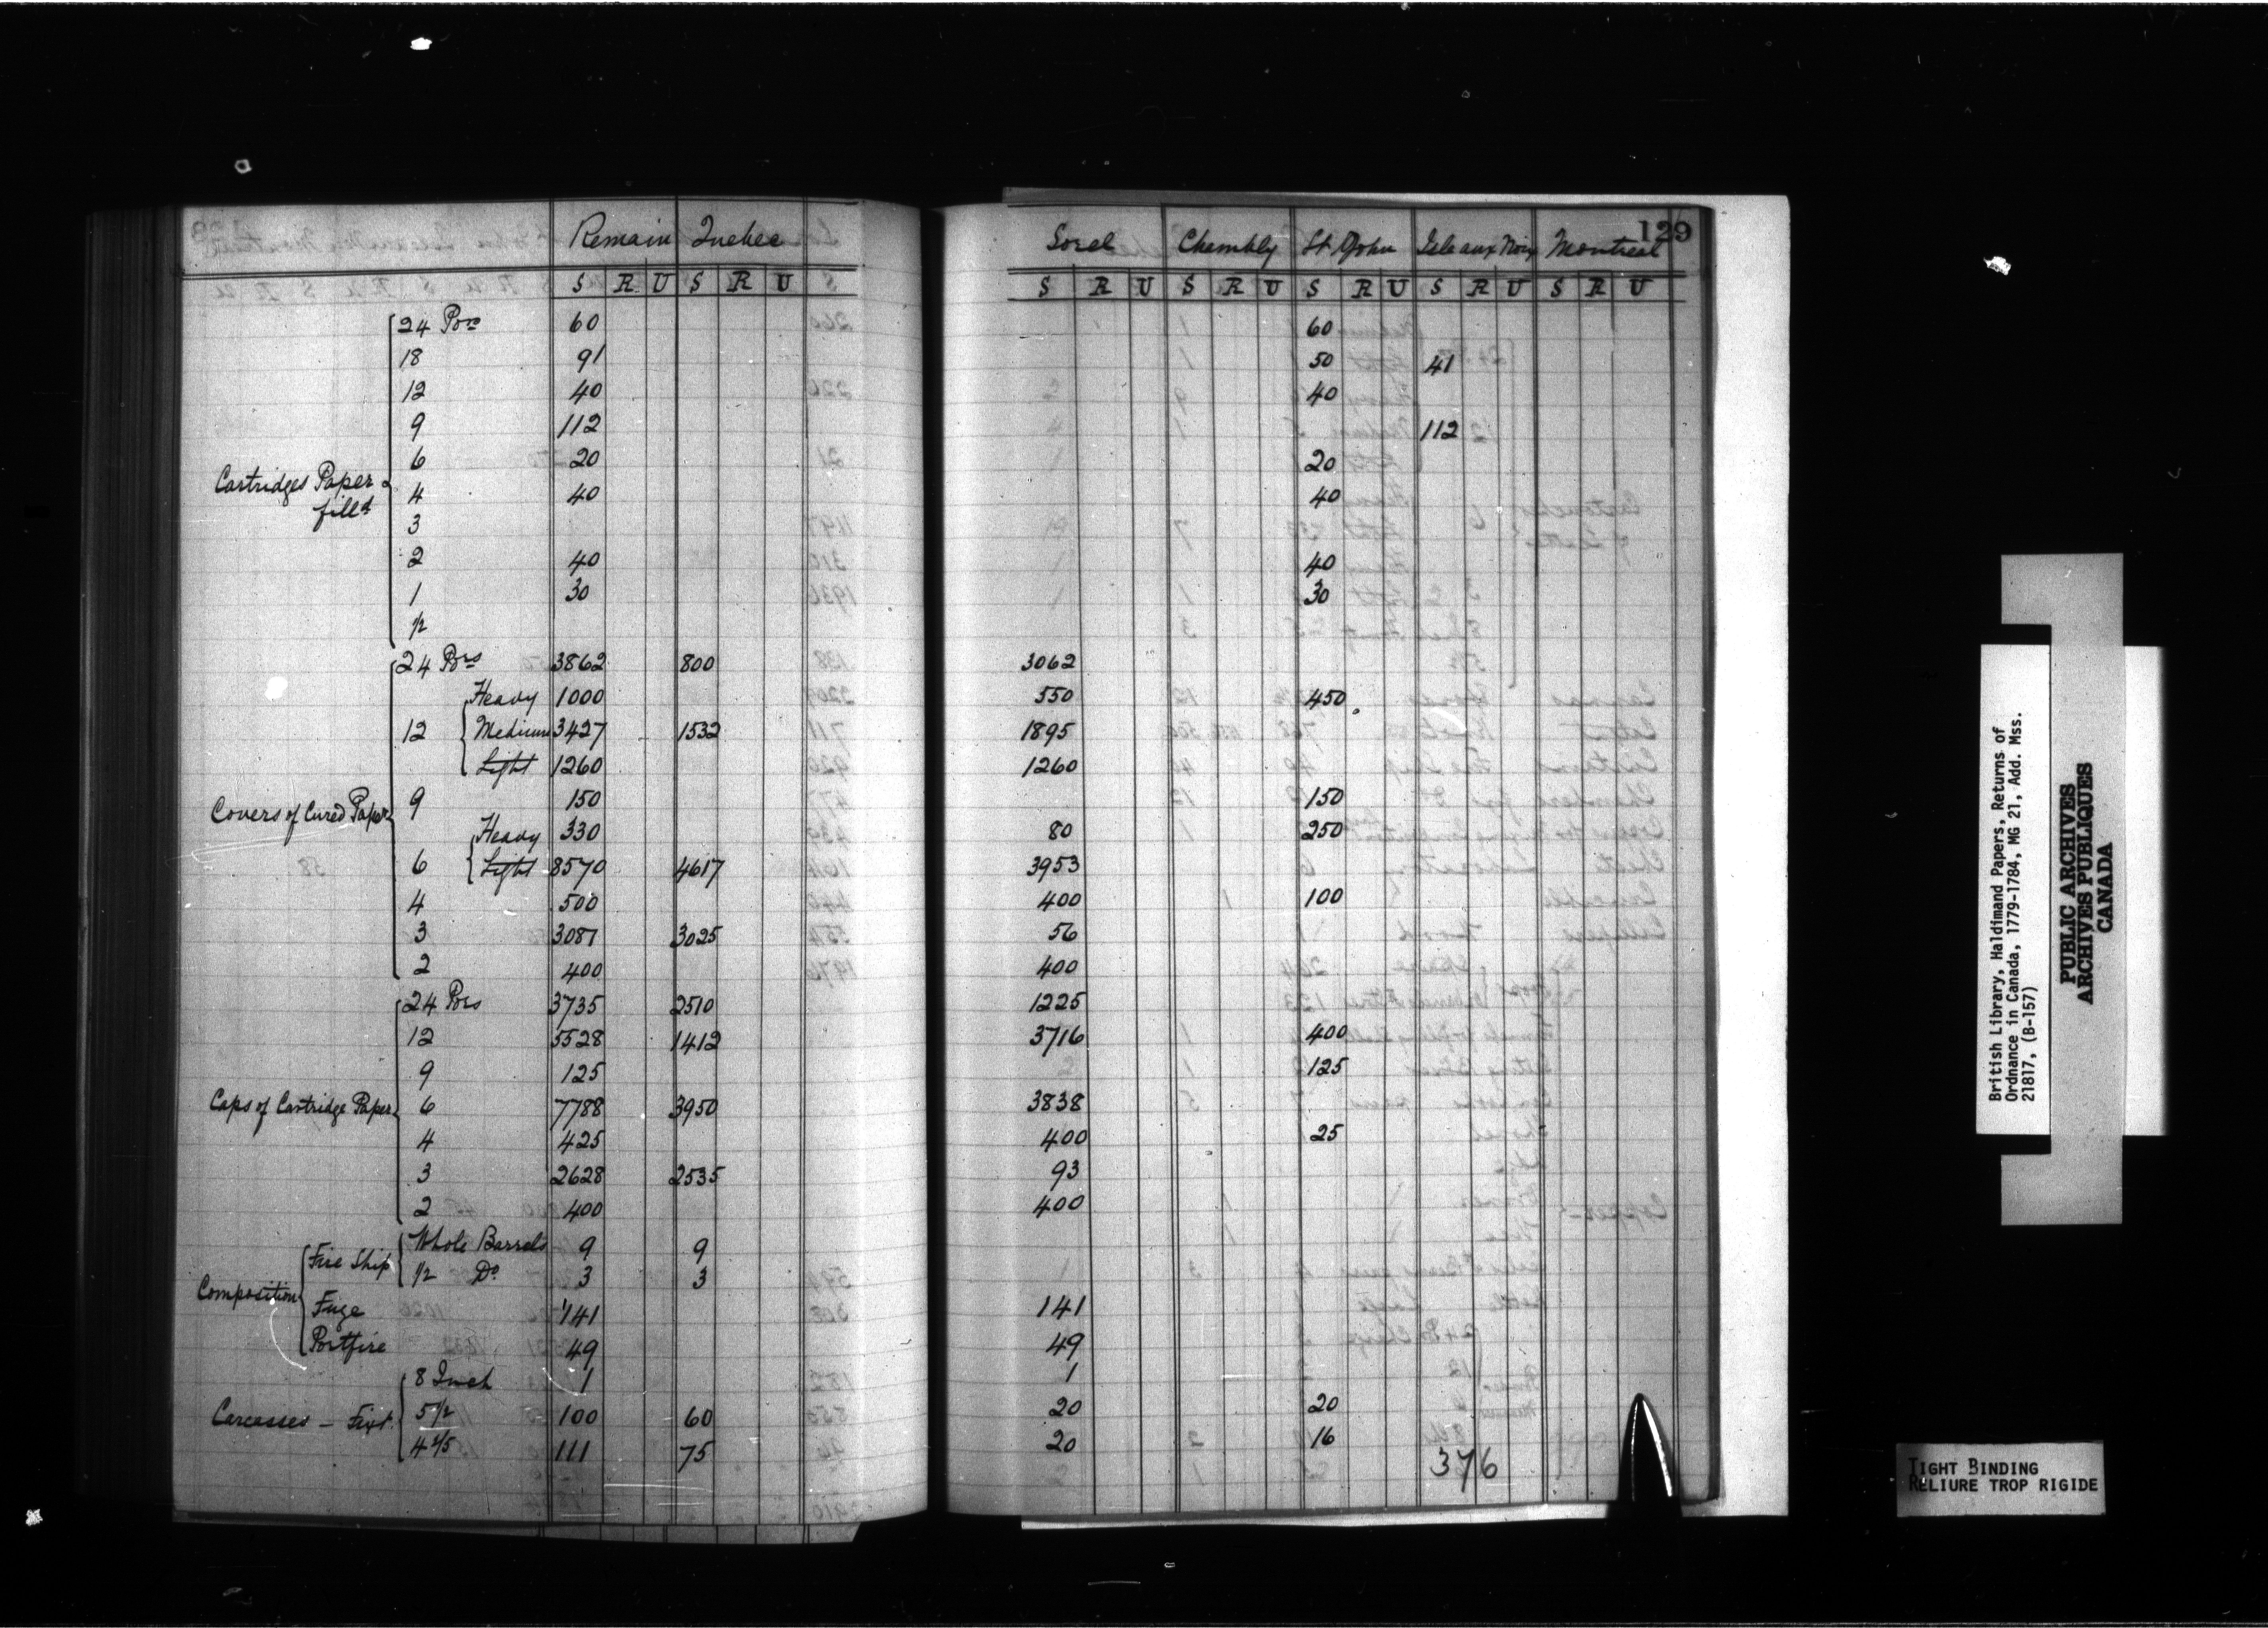 Remain Quebec Sorel Chambly St John Isle aux Noix Montreal 129
S R U S R U S S R U S R U S R U S R U S R U
Cartridges Paper filld
24 Pors 60 60
18 91 50 41
12 40 40
9 112 112
6 20 20
4 40 40
3
2 40 40
1 30 30
1/2
Covers of Cured Paper
24 Pors 3862 800 3062
12 Heavy 1000 550 450
Medium 3427 1532 1895
Light 1260 1260
9 150 150
6 Heavy 330 80 250
Light 8570 4617 3953
4 500 400 100
3 3081 3025 56
2 400 400
Caps of Cartridge Paper
24 Pors 3735 2510 1225
12 5528 1412 3716 400
9 125 125
6 7788 3950 3838
4 425 400 25
3 2628 2535 93
2 400 400
Composition
Fire Ship Whole Barrels 9 9
1/2 Do 3 3
Fuze 141 141
Portfire 49 49
Carcasses – Fixt
8 Inch 1 1
5 1/2 100 60 20 20
4 2/5 111 75 20 16
376
British Library, Haldimand Papers, Returns of
Ordnance in Canada, 1779-1784, MG 21, Add. Mss.
21817, (B-157)
PUBLIC ARCHIVES
ARCHIVES PUBLIQUES
CANADA
TIGHT BINDING
RELIURE TROP RIGIDE